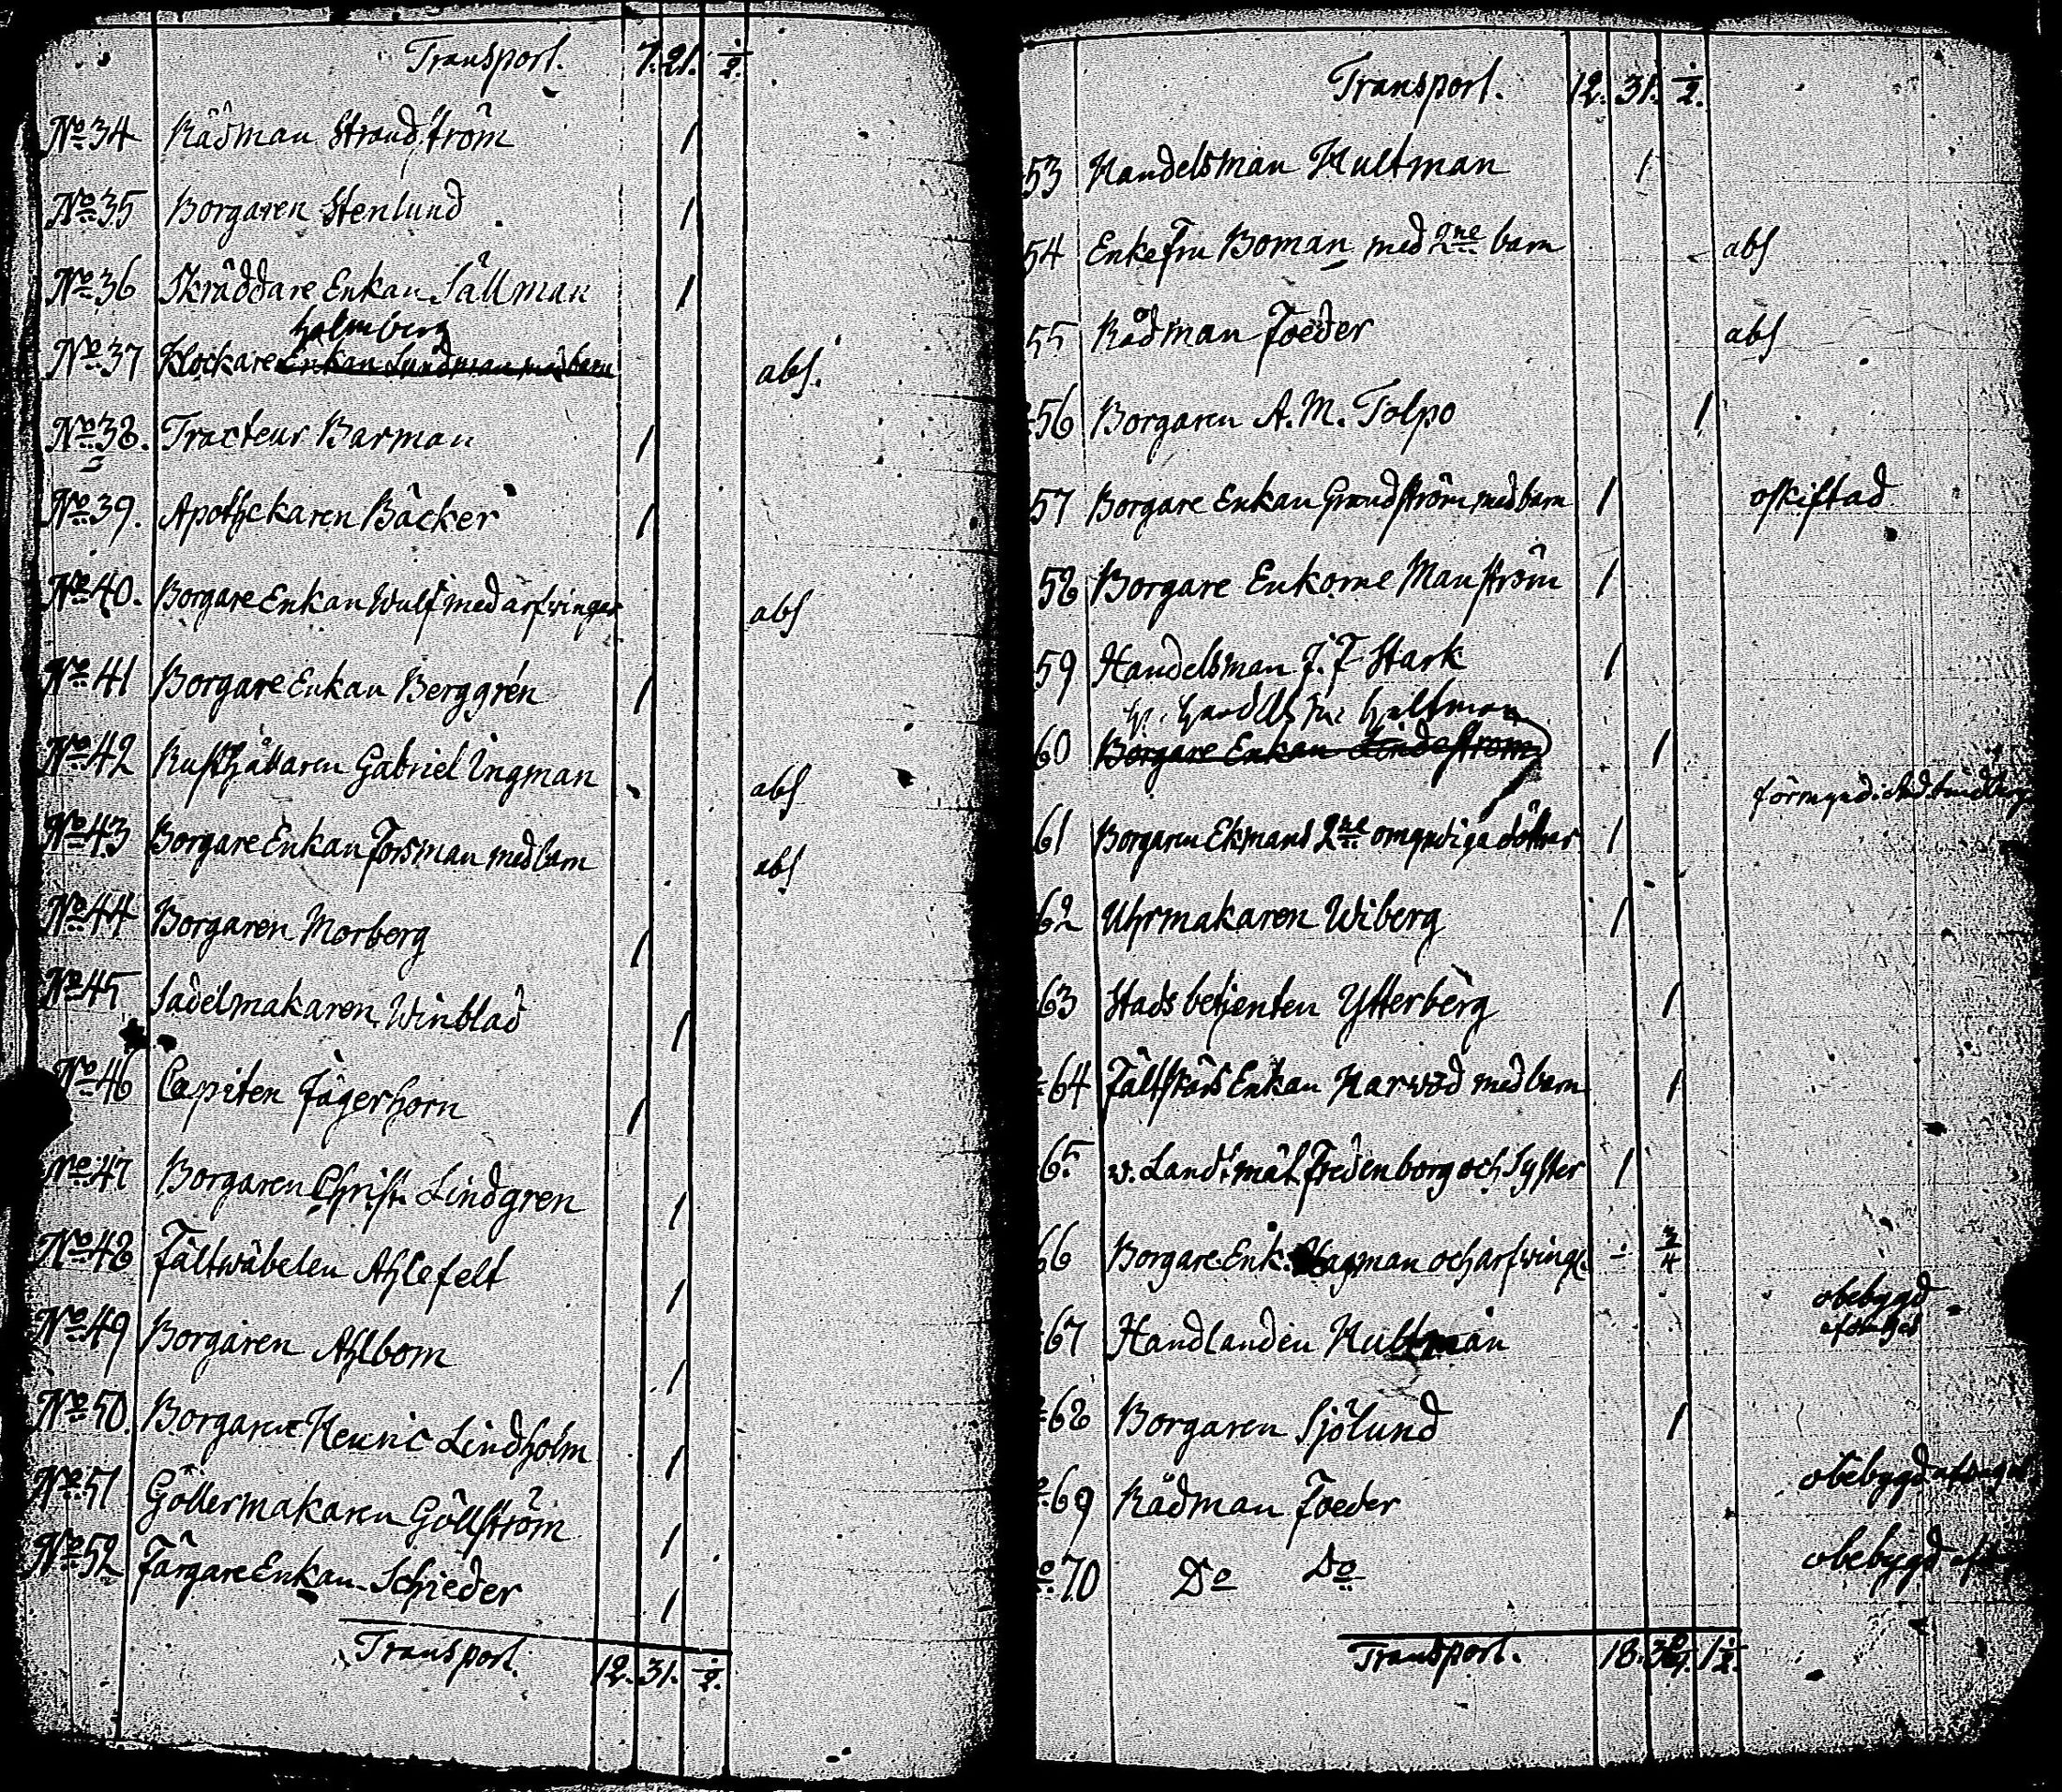 Transport. 7. 21. 1/2.
No 34 Rådman Strandström 1
No 35 Borgaren Stenlund 1
No 36 Skräddare Enkan Sällman 1
Holmberg
No 37 Klockare Enkan Lundman med barn abs.
No 38. Tracteur Barman 1
No 39. Apothekaren Bäcker 1
No 40. Borgare Enkan Wulf med arfvingar abs
No 41 Borgare Enkan Berggrén 1
No 42 Rusthållaren Gabriel Ingman abs
No 43 Borgare Enkan Forsman med barn abs
No 44 Borgaren Morberg 1
No 45 Sadelmakaren Winblad 1
No 46 Capiten Jägerhorn 1
No 47 Borgaren Christ. Lindgren 1
No 48 Fältwäbelen Ahlefelt 1
No 49 Borgaren Ahlbom 1
No 50. Borgaren Henric Lindholm 1
No 51 Göllermakaren Göllström 1
No 52 Färgare Enkan Schieder 1
Transport. 12. 31. 1/2.
Transport. 12. 31. 1/2.
53 Handelsman Hultman 1
54 Enkefru Boman med 2ne barn abs
55 Rådman Foeder abs
56 Borgaren A. M. Tolpo 1
57 Borgare Enkan Grundström med barn 1 oskiftad
58 Borgare Enkorne Manström 1
59 Handelsman J. F. Stark 1
Hultman
60 Borgare Enkan Lindeström 1
61 Borgaren Ekmans 2ne omyndiga döttrar 1
62 Uhrmakaren Wiberg 1
63 Stads betjenten Ytterberg 1
64 Fältskärs Enkan Harwod med barn 1
65 v. Landtmät. Fredenborg och Syster 1
66 Borgare Enk. Hagman och arfving. - 3/4
67 Handlanden Hultman obebygd
68 Borgaren Sjölund 1
69 Rådman Foeder obebygd
No 70 Do Do obebygd
Transport. 18. 1 1/2.